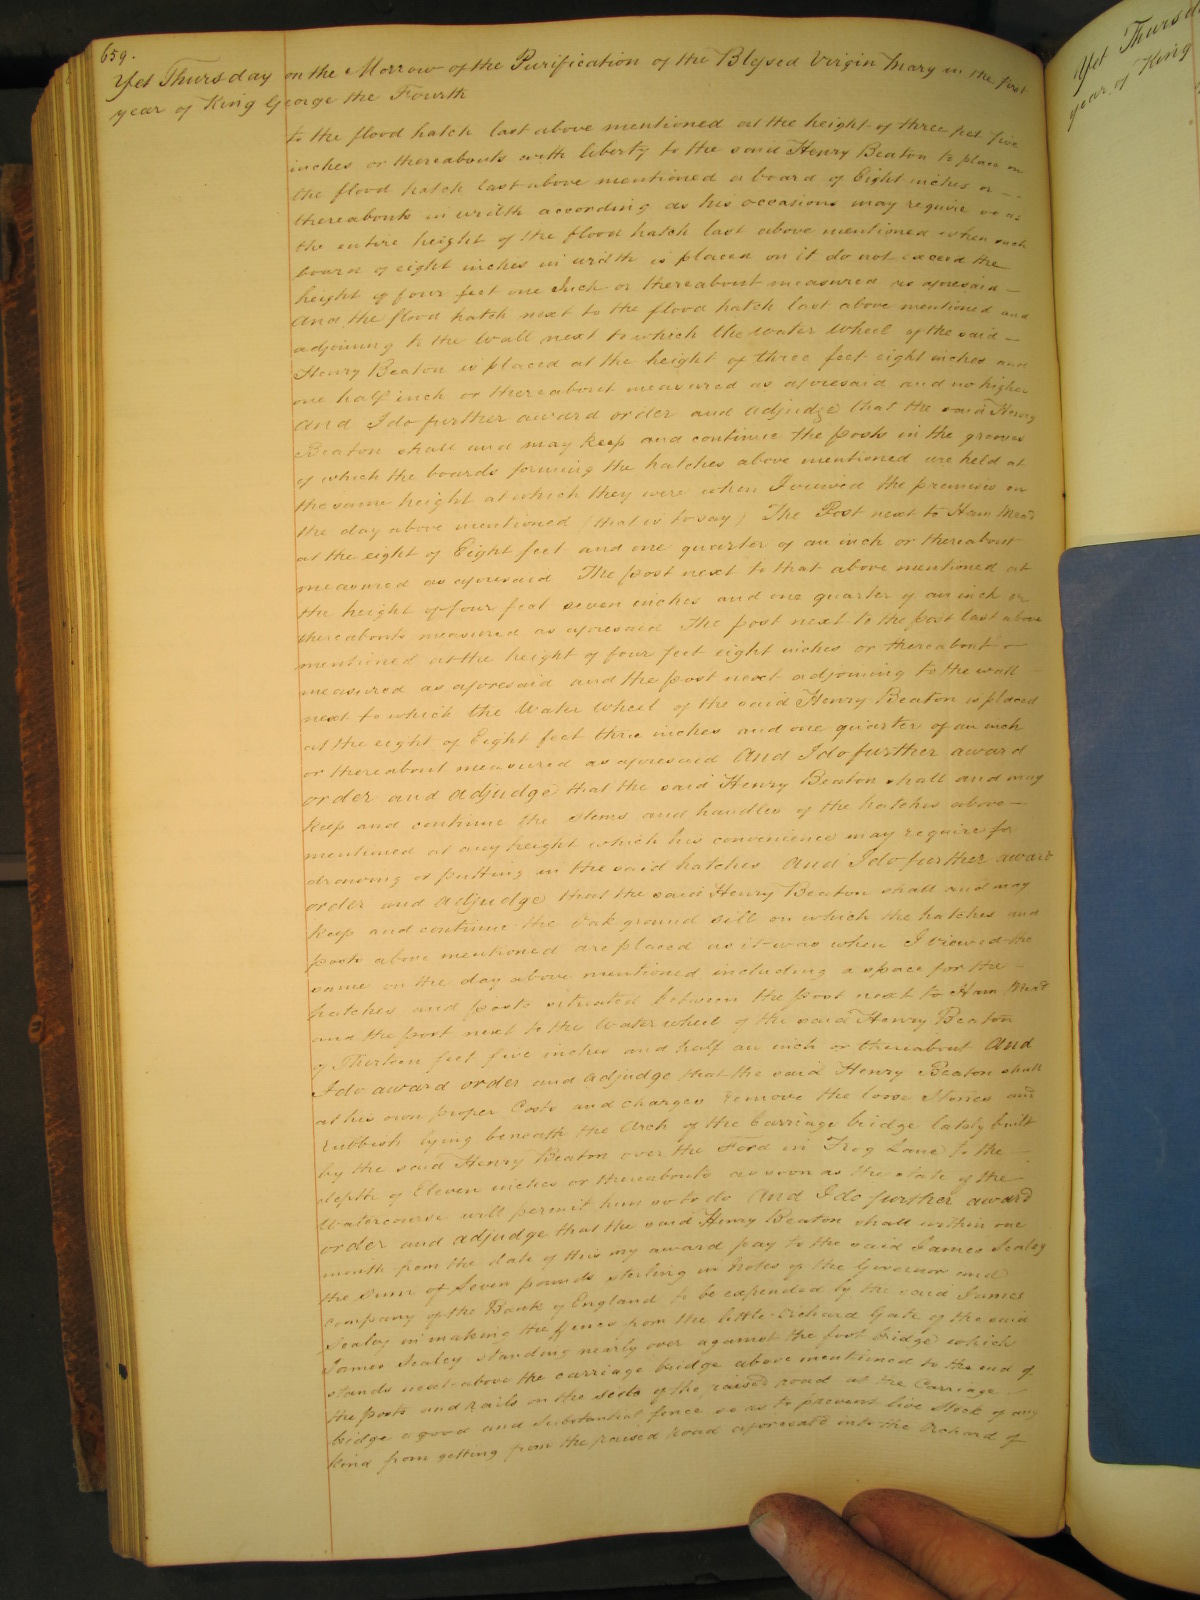 659.
Yet Thursday on the Morrow of the Purification of the Blessed Virgin Mary in the first
year of King George the Fourth
to the flood hatch last above mentioned at the height of three feet five
inches or thereabouts with liberty to the said Henry Beaton to place on
the flood hatch last above mentioned a board of Eight inches or —
thereabouts in width according as his occasions may require so as
the entire height of the flood hatch last above mentioned when such
board of eight inches in width is placed on it do not exceed the
height of four feet one Inch or thereabout measured as aforesaid —
And the flood hatch next to the flood hatch last above mentioned and
adjoining to the Wall next to which the water wheel of the said —
Henry Beaton is placed at the height of three feet eight inches and
one half inch or thereabout measured as aforesaid and no higher
And I do further award order and adjudge that the said Henry
Beaton shall and may keep and continue the posts in the grooves
of which the boards forming the hatches above mentioned are held at
the same height at which they were when I viewed the premises on
the day above mentioned (that is to say) The Post next to Ham Mead
at the eight of Eight feet and one quarter of an inch or thereabout
measured as aforesaid The post next to that above mentioned at
the height of four feet seven inches and one quarter of an inch or
thereabouts measured as aforesaid The post next to the post last above
mentioned at the height of four feet eight inches or thereabout —
measured as aforesaid and the post next adjoining to the wall
next to which the Water Wheel of the said Henry Beaton is placed
at the eight of Eight feet three inches and one quarter of an inch
or thereabout measured as aforesaid And I do further award
order and adjudge that the said Henry Beaton shall and may
keep and continue the stems and handles of the hatches above —
mentioned at any height which his convenience may require for
drawing or putting in the said hatches And I do further award
order and adjudge that the said Henry Beaton shall and may
keep and continue the Oak ground sill on which the hatches and
posts above mentioned are placed as it was when I viewed the
same on the day above mentioned including a space for the —
hatches and posts situated between the post next to Ham Mead
and the post next to the Water wheel of the said Henry Beaton
of Thirteen feet five inches and half an inch or thereabout And
I do award order and adjudge that the said Henry Beaton shall
at his own proper Costs and charges remove the loose Stones and
rubbish lying beneath the Arch of the Carriage bridge lately built
by the said Henry Beaton over the Ford in Frog Lane to the —
depth of Eleven inches or thereabouts as soon as the state of the
Watercourse will permit him so to do And I do further award
order and adjudge that the said Henry Beaton shall within one
month from the date of this my award pay to the said James Sealey
the Sum of Seven pounds sterling in Notes of the Governor and
Company of the Bank of England to be expended by the said James
Sealey in making the fence from the little Orchard Gate of the said
James Sealey standing nearly over against the foot bridge which
stands next above the carriage bridge above mentioned to the end of
the posts and rails on the side of the raised road at the Carriage
bridge a good and substantial fence so as to prevent live Stock of any
kind from getting from the raised Road aforesaid into the Orchard of
Yet Thursd
year of King